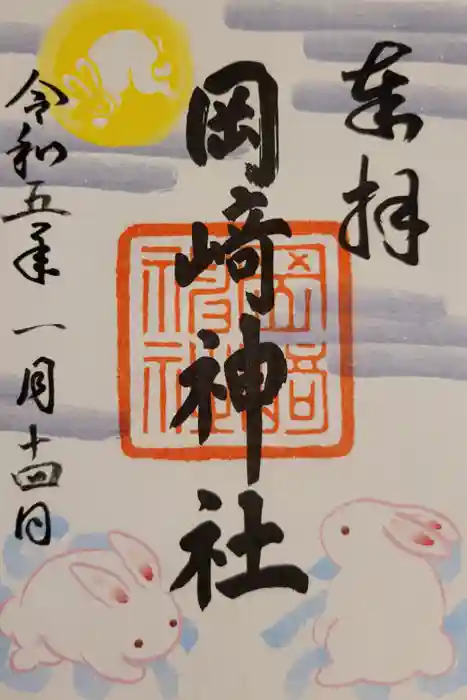 奉拝
岡﨑神社
岡﨑神社
令和五年一月十四日